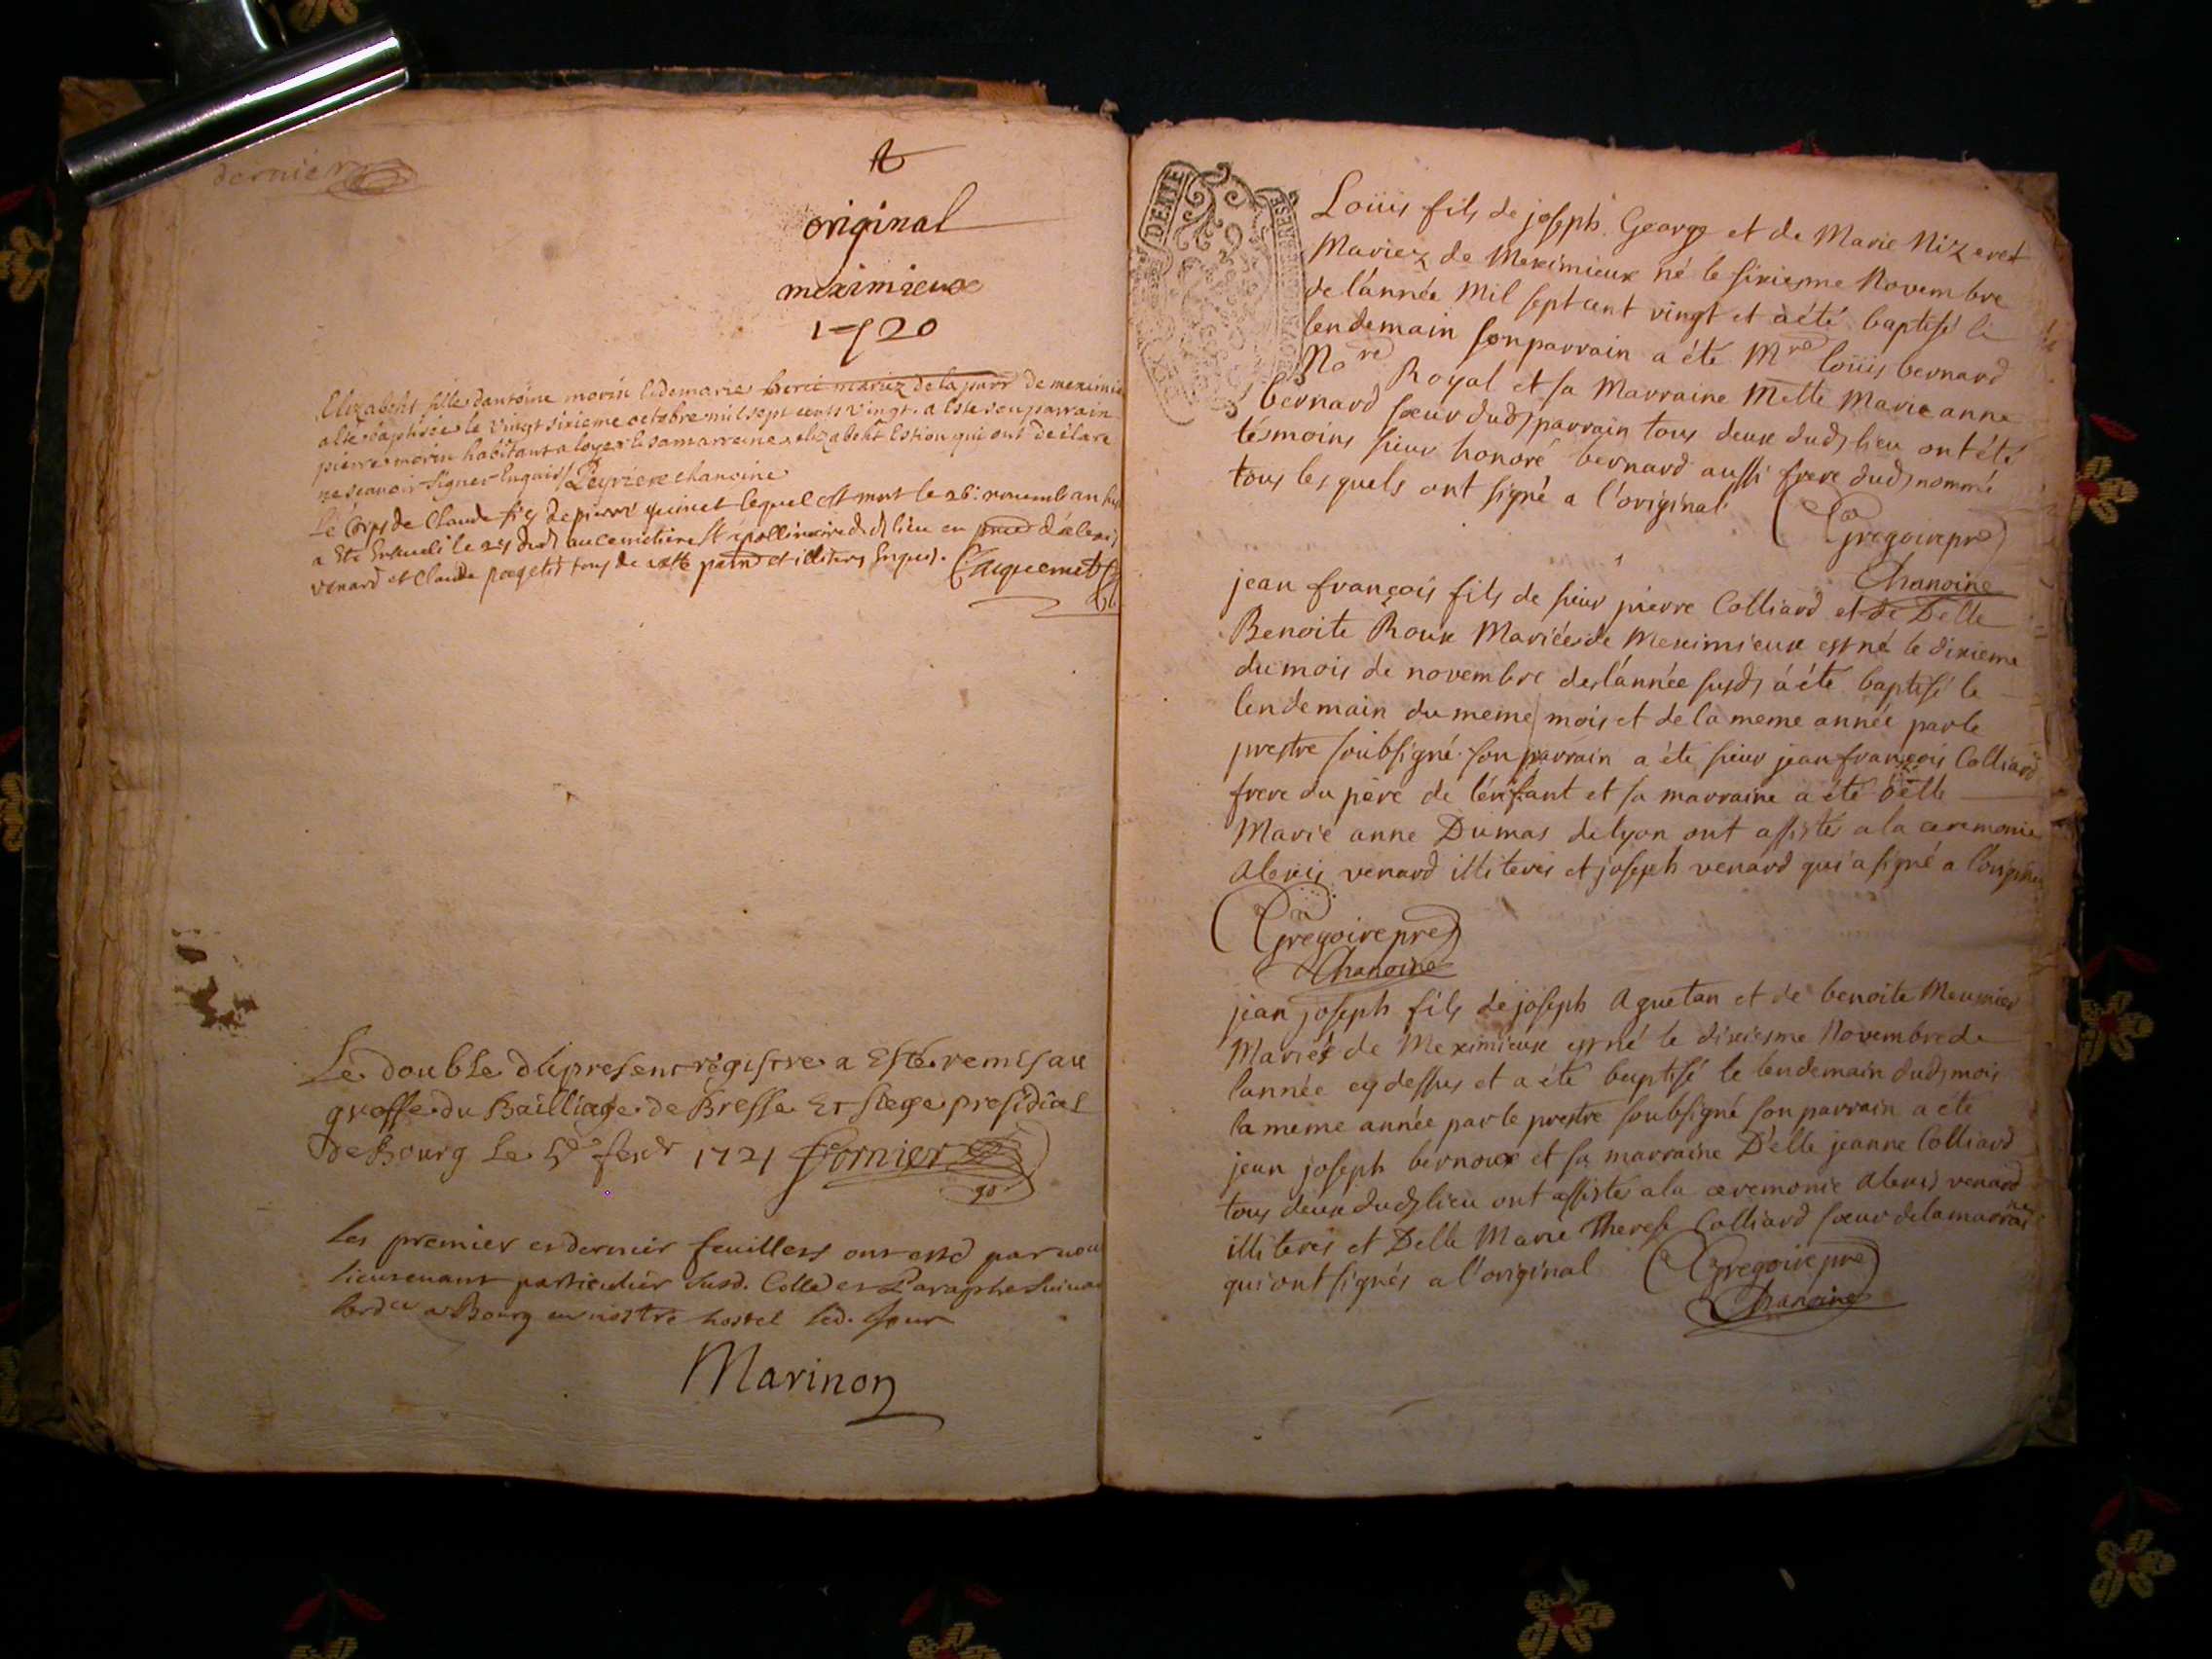 dernier
original
meximieux
1720
Elizabeht fille dantoine morin & demarie berci mariez de la parr de meximie
a été baptisée le vingt sixieme octobre mil sept cents vingt. a esté son parrain
pierre morin habitant a loyes & sa marreine elizabeht Estion qui ont déclaré
ne scavoir signer Enquis / Peyrieu chanoine
Le Corps de Claude fils de pierre quinet lequel est mort le 26e novemb an
a Ete Enseveli le 27 dud au cemetiere St apollinaire dud lieu en d'alexis
venard et Claude tous de cette et illiteres Enquis. Jacquemet
Le double du present registre a Esté remis au
greffe du Bailliage de Bresse Et siege presidial
De Bourg Le 5e fevr 1721 fornier
Les premier et dernier feuillets ont esté par nou
lieutenant particulier susd. Collé et Paraphe suivan
lord ce a Bourg en nostre hostel led. Jour
Marinon
DENTE
Loüis fils de joseph George et de Marie Nizeret
Mariez de Meximieux né le sixiesme Novembre
de l'année Mil sept cent vingt et a été baptisé le
lendemain son parrain a été Mre loüis bernard
Nore Royal et sa Marraine Melle Marie anne
bernard sœur dud parrain tous deux dud lieu ont été
tésmoins sieur honoré bernard aussi frere dud nommé
tous les quels ont signé a l'original
Gregoire pre
Chanoine
jean françois fils de sieur pierre Colliard et de Delle
Benoite Roux Mariés de Meximieux est né le dixieme
du mois de novembre de l'année susd a été baptisé le
lendemain du meme mois et de la meme année par le
prestre soubsigné. son parrain a été sieur jean françois Colliard
frere du pere de l'enfant et sa marraine a été Delle
Marie anne Dumas de lyon ont assisté a la ceremonie
alexis venard illiteres et joseph venard qui a signé a l'original
Gregoire pre
Chanoine
jean joseph fils de joseph Aguetan et de benoite Meusnier
Mariés de Meximieux est né le dixiesme Novembre de
lannée cy dessus et a été baptisé le lendemain dud mois
la meme année par le prestre soubsigné son parrain a été
jean joseph bernoux et sa marraine Delle jeanne Colliard
tous deux dud lieu ont assisté a la ceremonie alexis venard
illiteres et Delle Marie Therese Colliard sœur de la marraine
qui ont signés a l'original Gregoire pre
Chanoine